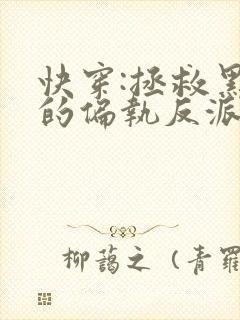 快穿:拯救黑
的偏執反派
柳藹之 (青羅